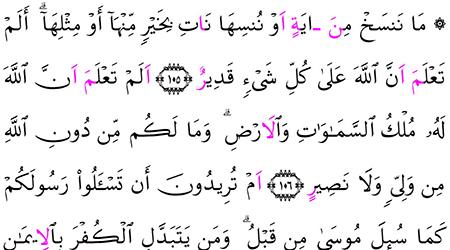 ۞ مَا نَنسَخْ مِنَ ـ ايَةٍ اَوْ نُنسِهَا نَاتِ بِخَيْرٖ مِّنْهَآ أَوْ مِثْلِهَآۖ أَلَمْ
تَعْلَمَ اَنَّ اَللَّهَ عَلَىٰ كُلِّ شَےْءٖ قَدِيرٌ ١٠٥ اَلَمْ تَعْلَمَ اَنَّ اَللَّهَ
لَهُۥ مُلْكُ اُلسَّمَٰوَٰتِ وَالَارْضِۖ وَمَا لَكُم مِّن دُونِ اِللَّهِ
مِن وَلِيّٖ وَلَا نَصِيرٍ ١٠٦ اَمْ تُرِيدُونَ أَن تَسْـَٔلُواْ رَسُولَكُمْ
كَمَا سُئِلَ مُوسَىٰ مِن قَبْلُۖ وَمَنْ يَّتَبَدَّلِ اِلْكُفْرَ بِالِايمَٰنِ